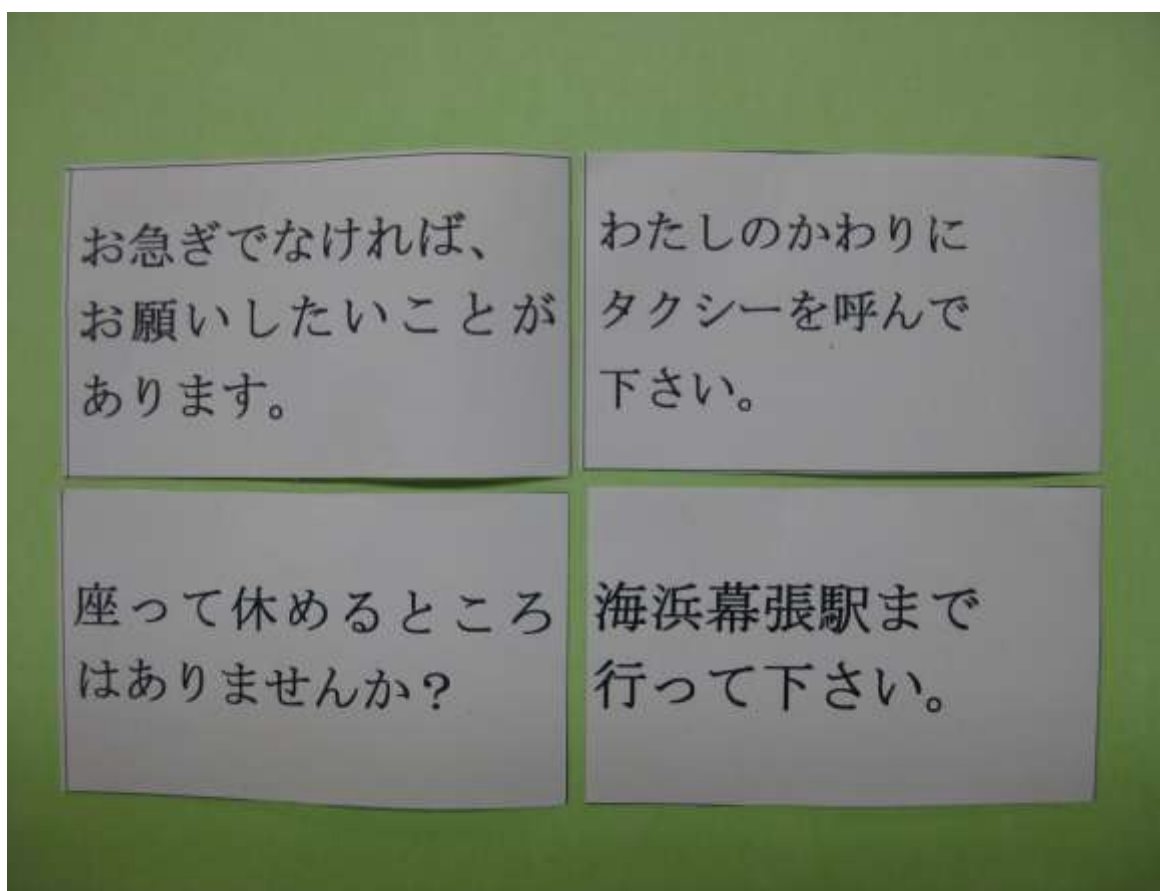 お急ぎでなければ、
お願いしたいことが
あります。
わたしのかわりに
タクシーを呼んで
下さい。
座って休めるところ
はありませんか？
海浜幕張駅まで
行って下さい。